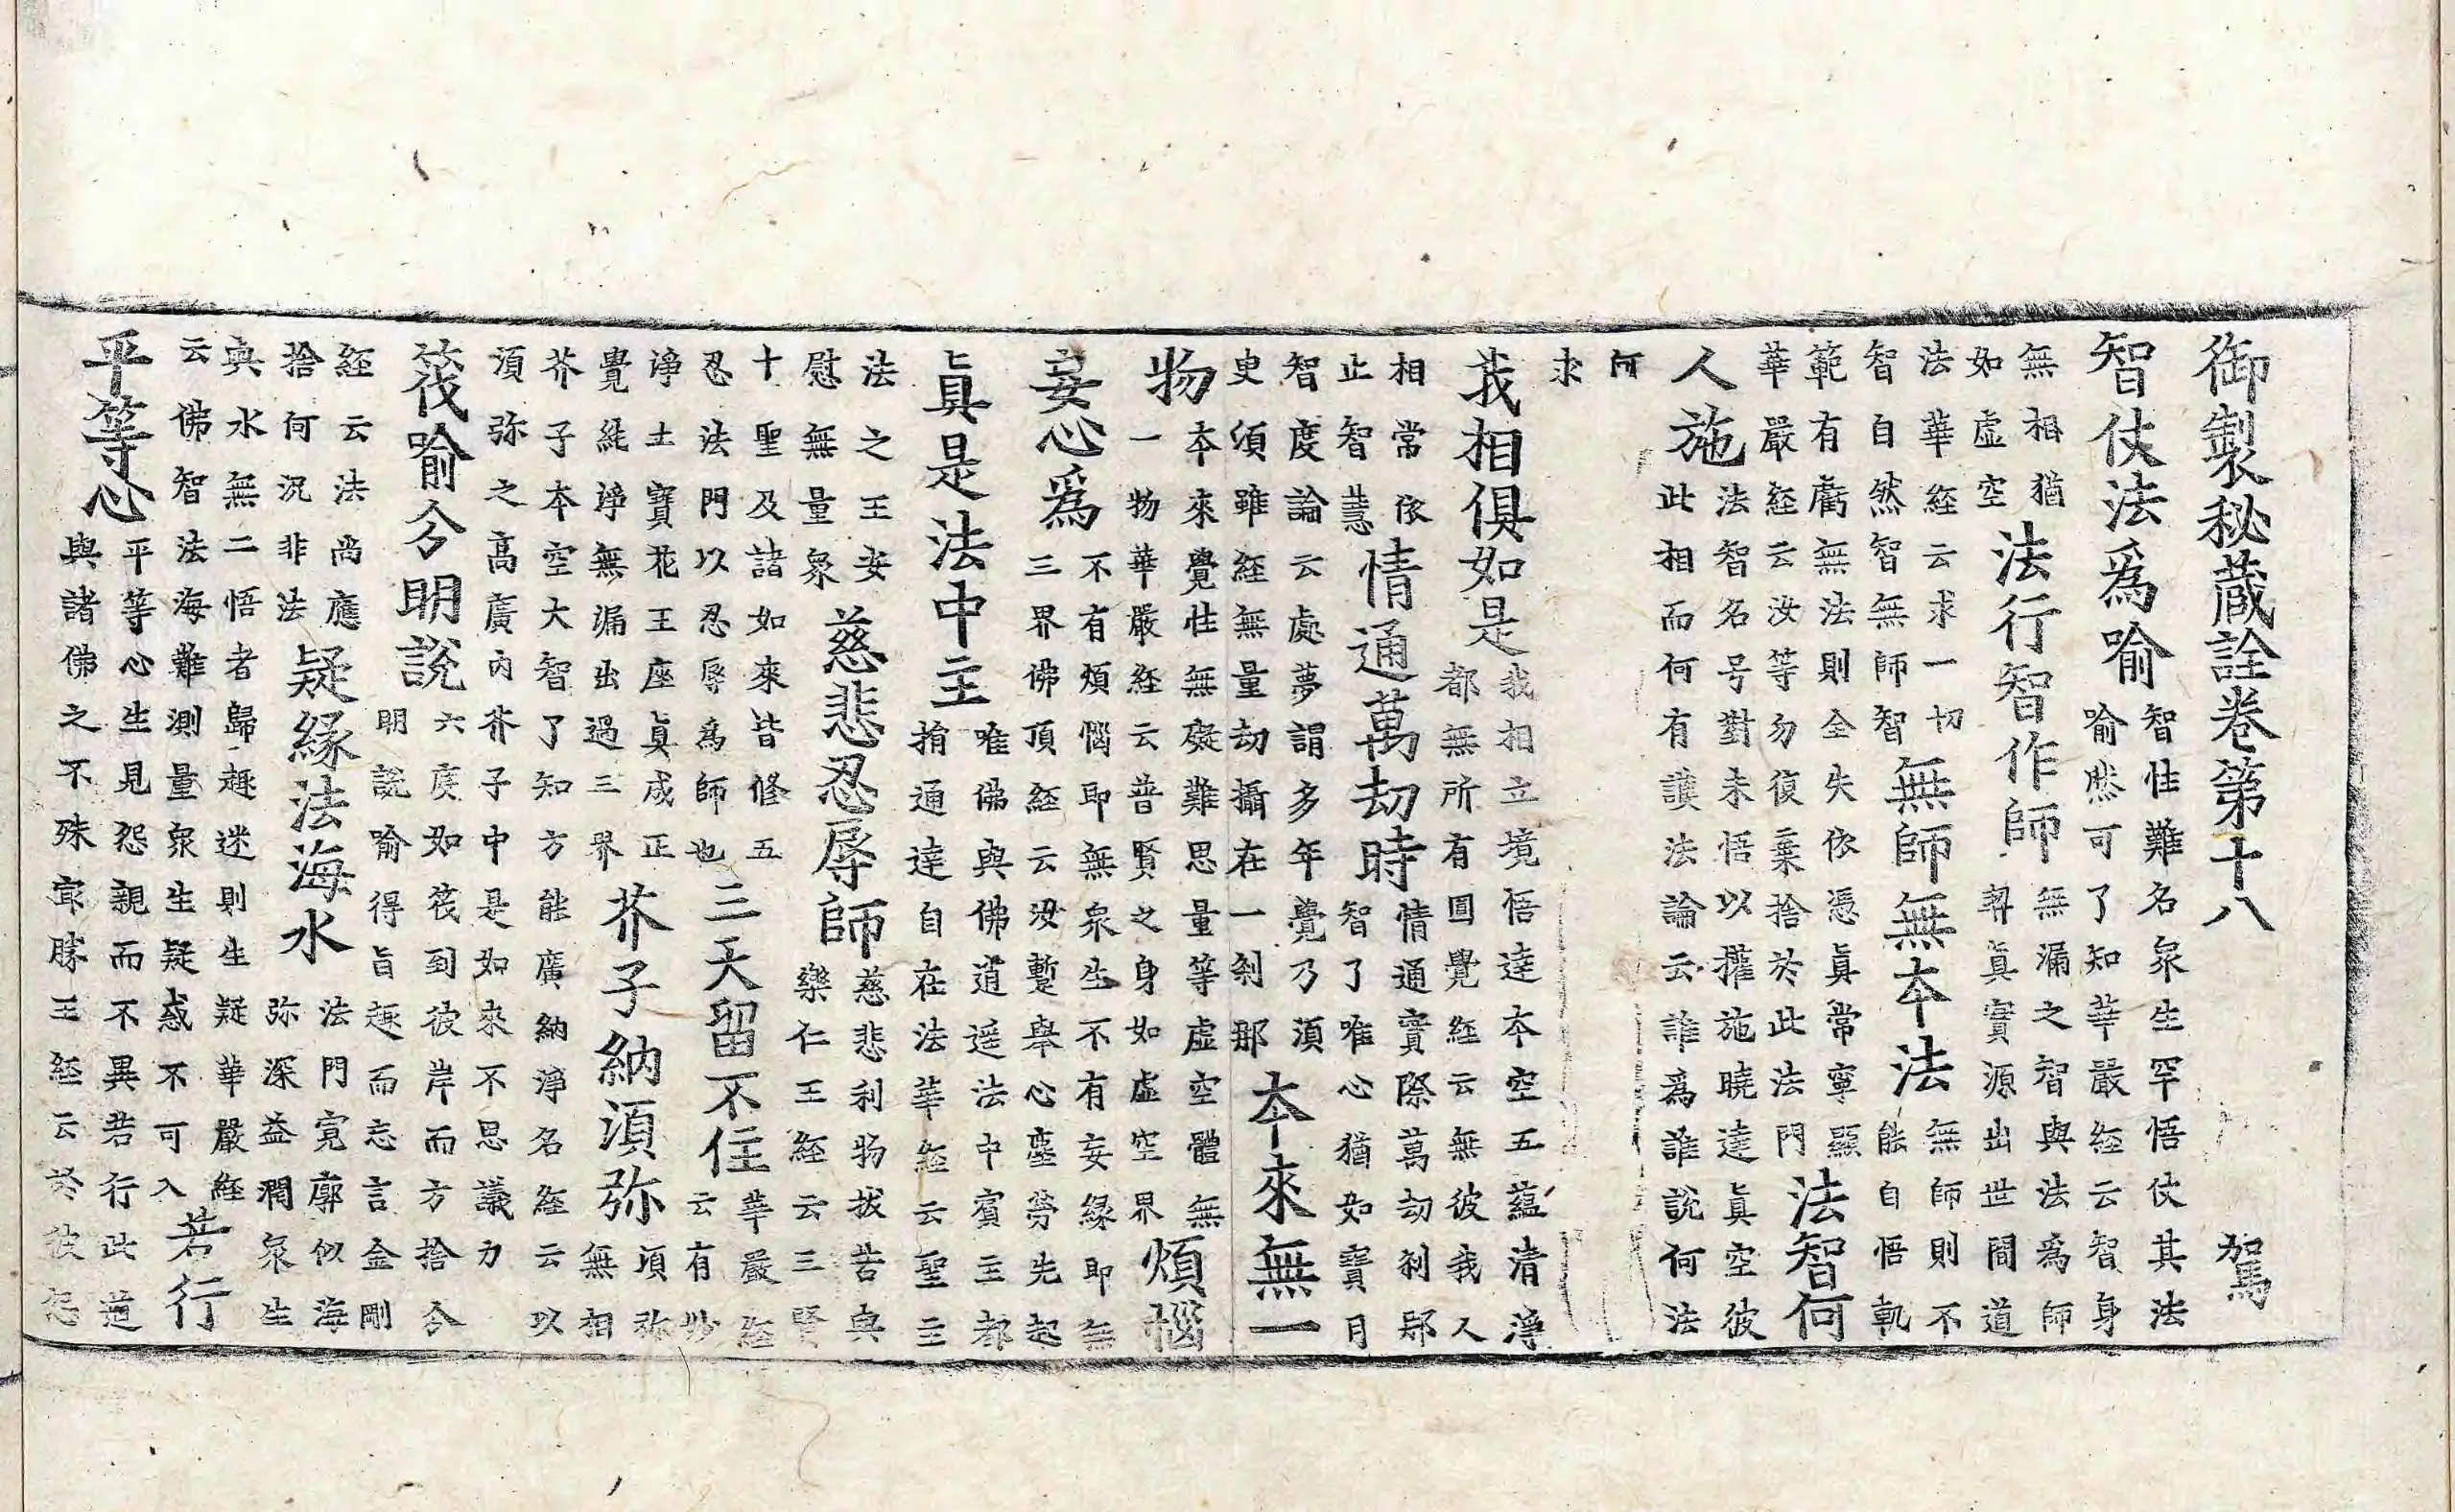 御製秘蔵詮卷第十八　駕
智仗法爲喻智性難名衆生罕悟仗其法
喻𢘻可了知華嚴經云智身
無相猶
如虛空法行智作師無漏之智與法爲師
契眞實源出世間道
法華經云求一切
智自然智無師智無師無本法無師則不
能自悟軌
範有虧無法則全失依憑眞常寧顯
華嚴經云汝等勿復棄捨於此法門法智何
人施法智名号對未悟以權施曉達眞空彼
此相而何有護法論云誰爲誰說何法
何
求
我相俱如是我相立境悟達本空五蘊清淨
都無所有圓覺經云無彼我人
相常依
止智慧情通萬劫時情通實際萬劫刹那
智了唯心猶如寶月
智度論云處夢謂多年覺乃須
臾須雖經無量劫攝在一刹那本來無一
物本來覺性無礙難思量等虛空體無
一物華嚴經云普賢之身如虛空界煩惱
妄心爲不有煩惱即無衆生不有妄緣即無
三界佛頂經云汝暫舉心塵勞先起
眞是法中主唯佛與佛道遥法中賓主都
捐通達自在法華經云聖主
法之王安
慰無量衆慈悲忍辱師慈悲利物拔苦與
樂仁王經云三賢
十聖及諸如來皆修五
忍法門以忍辱爲師也三天留不住華嚴經
云有妙
淨土寶花王座眞成正
覺純淨無漏出過三界芥子納須弥須弥
無相
芥子本空大智了知方能廣納淨名經云以
須弥之高廣内芥子中是如來不思議力
筏喻分明說六度如筏到彼岸而方捨分
明說喻得旨趣而忘言金剛
經云法尚應
捨何況非法疑緣法海水法門寬廓似海
弥深益潤衆生
與水無二悟者歸趣迷則生疑華嚴經
云佛智法海難測量衆生疑惑不可入若行
平等心平等心生見怨親而不異若行此道
與諸佛之不殊㝡勝王經云於彼怨